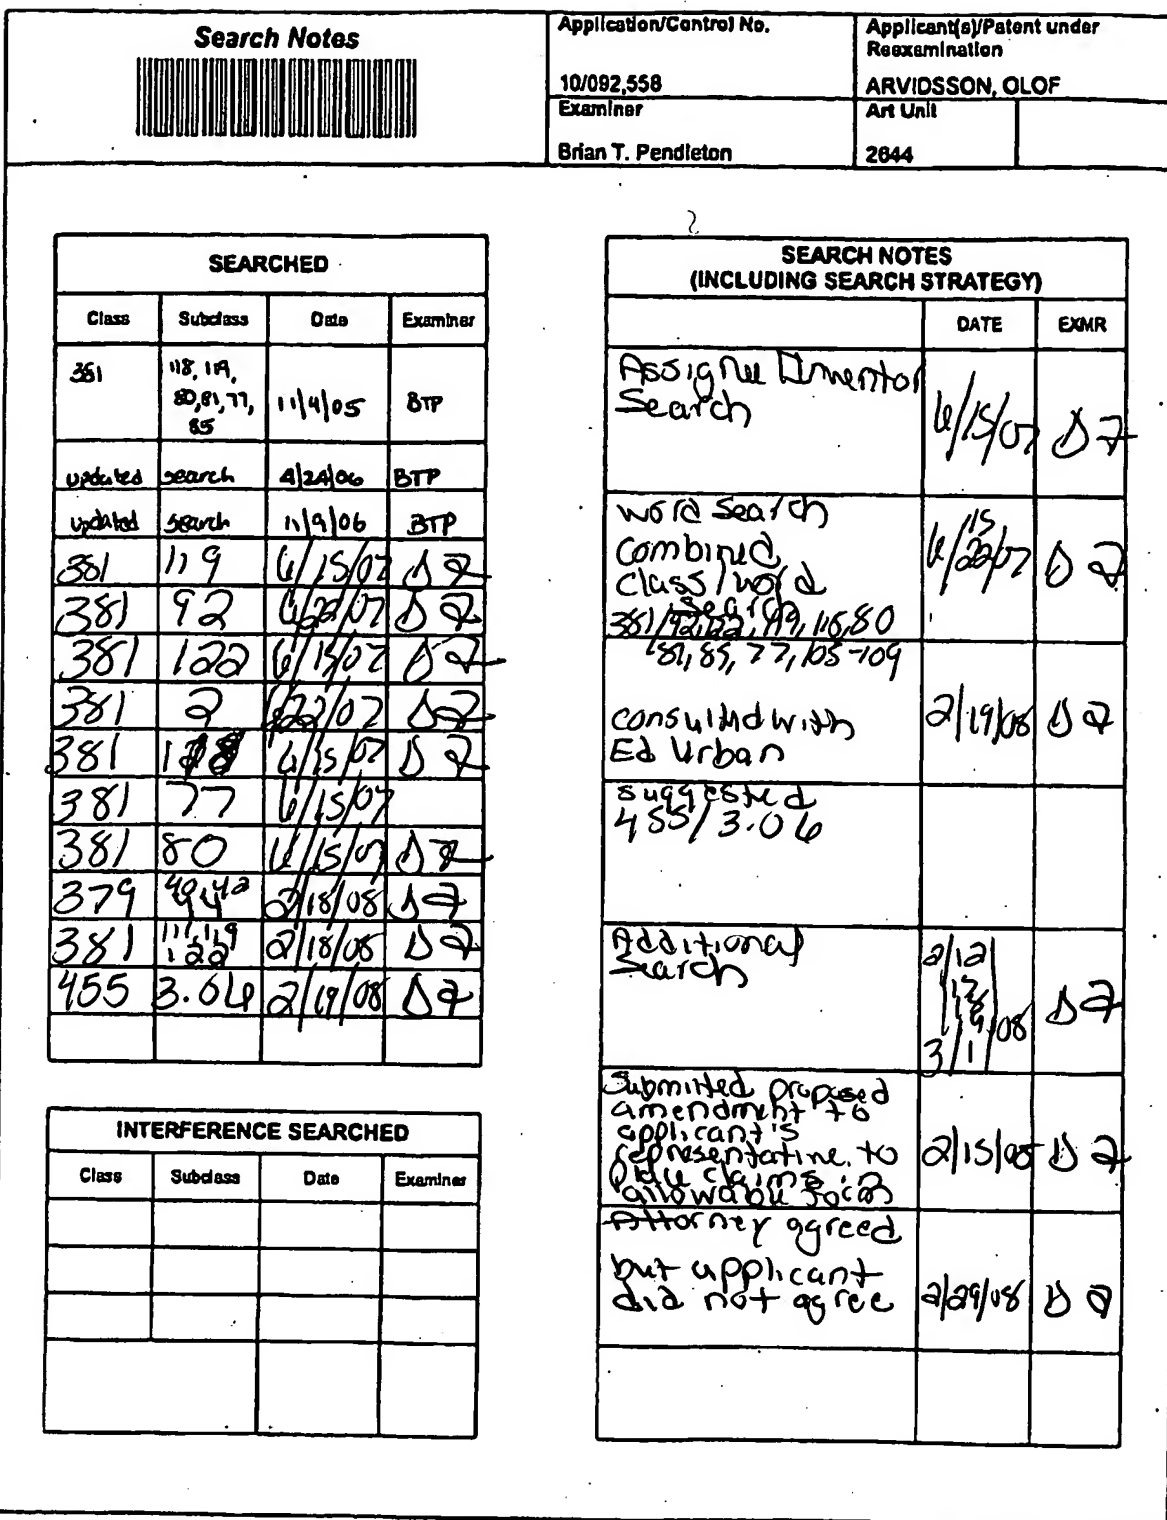 Search Notes
Application/Control No.
10/092,558
Applicant(s)/Patent under
Reexamination
ARVIDSSON, OLOF
Examiner
Brian T. Pendleton
Art Unit
2644
SEARCHED
Class Subclass Date Examiner
381 118, 119, 80, 81, 77, 85 11/4/05 BTP
updated search 4/24/06 BTP
updated search 11/9/06 BTP
381 119 6/15/07
381 92 6/22/07
381 122 6/15/07
381 2 6/22/07
381 6/15/07
381 77 6/15/07
381 80 6/15/07
379 2/18/08
381 119 122 2/18/08
455 3.06 2/19/08
INTERFERENCE SEARCHED
Class Subclass Date Examiner
SEARCH NOTES
(INCLUDING SEARCH STRATEGY)
DATE EXMR
Assignee Inventor
Search 6/15/07
word search
combined 6/15 22/07
class/word
search
381/92, 122, 119, 80
81, 85, 77, 105-109
consulted with 2/19/08
Ed Urban
suggested
455/3.06
Additional
Search
2/12
3/1/08
Submitted proposed
amendment to
applicant's
representative to 2/15/08
place claims in
allowable form
Attorney agreed
but applicant
did not agree 2/29/08